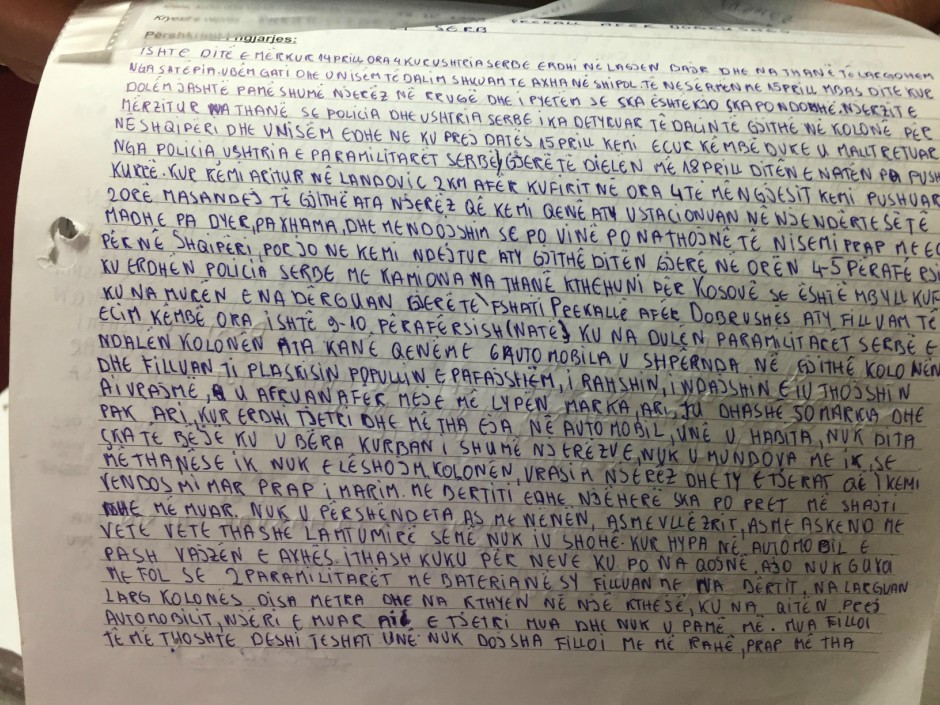 SERB PREKALL AFËR DOBRUSHES
Përshkrimi i ngjarjes:
ISHTE DITË E MËRKUR 14 PRILL ORA 4 KUR USHTRIA SERBE ERDHI NË LAGJEN DHE NA THANË TË LARGOHEM
NGA SHTËPIA. UBËM GATI DHE U NISËM TË DALIM SHKUAM TE AXHA NË SHIPOL. TË NESËRMEN ME 15 PRILL MBAS DITE KUR
DOLËM JASHTË PAMË SHUMË NJERËZ NË RRUGË DHE I PYETËM SE ÇKA ËSHTË KJO ÇKA PO NDODHË. NJERËZIT E
MËRZITUR NA THANË SE POLICIA DHE USHTRIA SERBE I KA DETYRUAR TË DALIN TË GJITHË NË KOLONË PËR
NË SHQIPËRI DHE U NISËM EDHE NE KU PREJ DATËS 15 PRILL KEMI ECUR KËMBË DUKE U MALLTRETUAR
NGA POLICIA USHTRIA E PARAMILITARËT SERBË, GJERË TË DIELEN MË 18 PRILL DITËN E NATËN PA PUSH
KURRË. KUR KEMI ARITUR NË LANDOVIC 2KM AFËR KUFIRIT NË ORA 4 TË MËNGJESIT KEMI PUSHUAR
2 ORË MASANDEJ TË GJITHË ATA NJERËZ QË KEMI QENË ATY U STACIONUAN NË NJË NDËRTESË TË
MADHE PA DYER, PA XHAMA, DHE MENDOJSHIM SE PO VINË PO NA THOJNË TË NISEMI PRAP ME EC
PËR NË SHQIPËRI, POR JO NE KEMI NDEJTUR ATY GJITHË DITËN GJERË NË ORËN 4-5 PËRAFËRSI
KU ERDHËN POLICIA SERBE ME KAMIONA NA THANË KTHEHUNI PËR KOSOVË SE ËSHTË MBYLL KUF
KU NA MUREN E NA DËRGUAN GJERË TË FSHATI PREKALLË AFËR DOBRUSHËS ATY FILLUAM TË
ECIM KËMBË ORA ISHTË 9-10 PËRAFËRSISH (NATË) KU NA DULËN PARAMILITARËT SERBË E
NDALËN KOLONËN ATA KANË QENË ME 6 AUTOMOBILA U SHPËRNDA NË GJITHË KOLONËN
DHE FILLUAN TI PLASKISIN POPULLIN E PAFAJSHËM, I RAHSHIN, I NDAJSHIN E IU THOJSHIN
A I VRASMË, U AFRUAN AFËR MEJE MË LYPËN MARKA, ARI, JU DHASHË 50 MARKA DHE
PAK ARI, KUR ERDHI TJETRI DHE MË THA EJA NË AUTOMOBIL, UNË U HABITA, NUK DITA
ÇKA TË BËJE KU U BËRA KURBAN I SHUMË NJERËZVE, NUK U MUNDOVA ME IK, SE
MË THANË SE IK NUK E LËSHOJM KOLONËN, VRASIM NJERËZ DHE TY E TJERAT QË I KEMI
VENDOS MI MAR PRAP I MARIM. MË BËRTITI EDHE NJËHERË ÇKA PO PRET MË SHAJTI
DHE MË MUAR. NUK U PËRSHËNDETA AS ME NËNËN, AS ME VLLEZRIT, AS ME ASKEND ME
VETË VETE THASHË LAMTUMIRË SE MË NUK IU SHOHË. KUR HYPA NË AUTOMOBIL E
PASH VAJZËN E AXHËS. I THASH KUKU PËR NEVE KU PO NA QOJNË, AJO NUK GUXO
ME FOL SE 2 PARAMILITARËT ME BATERIA NË SY FILLUAN ME NA BËRTIT, NA LARGUAN
LARG KOLONËS DISA METRA DHE NA KTHYEN NË NJË KTHESË, KU NA QITËN PREJ
AUTOMOBILIT, NJËRI E MUAR E TJETRI MUA DHE NUK U PAMË MË. MUA FILLOI
TË MË THOSHTË DESHI TESHAT UNË NUK DOJSHA FILLOI ME MË RAHË, PRAP MË THA